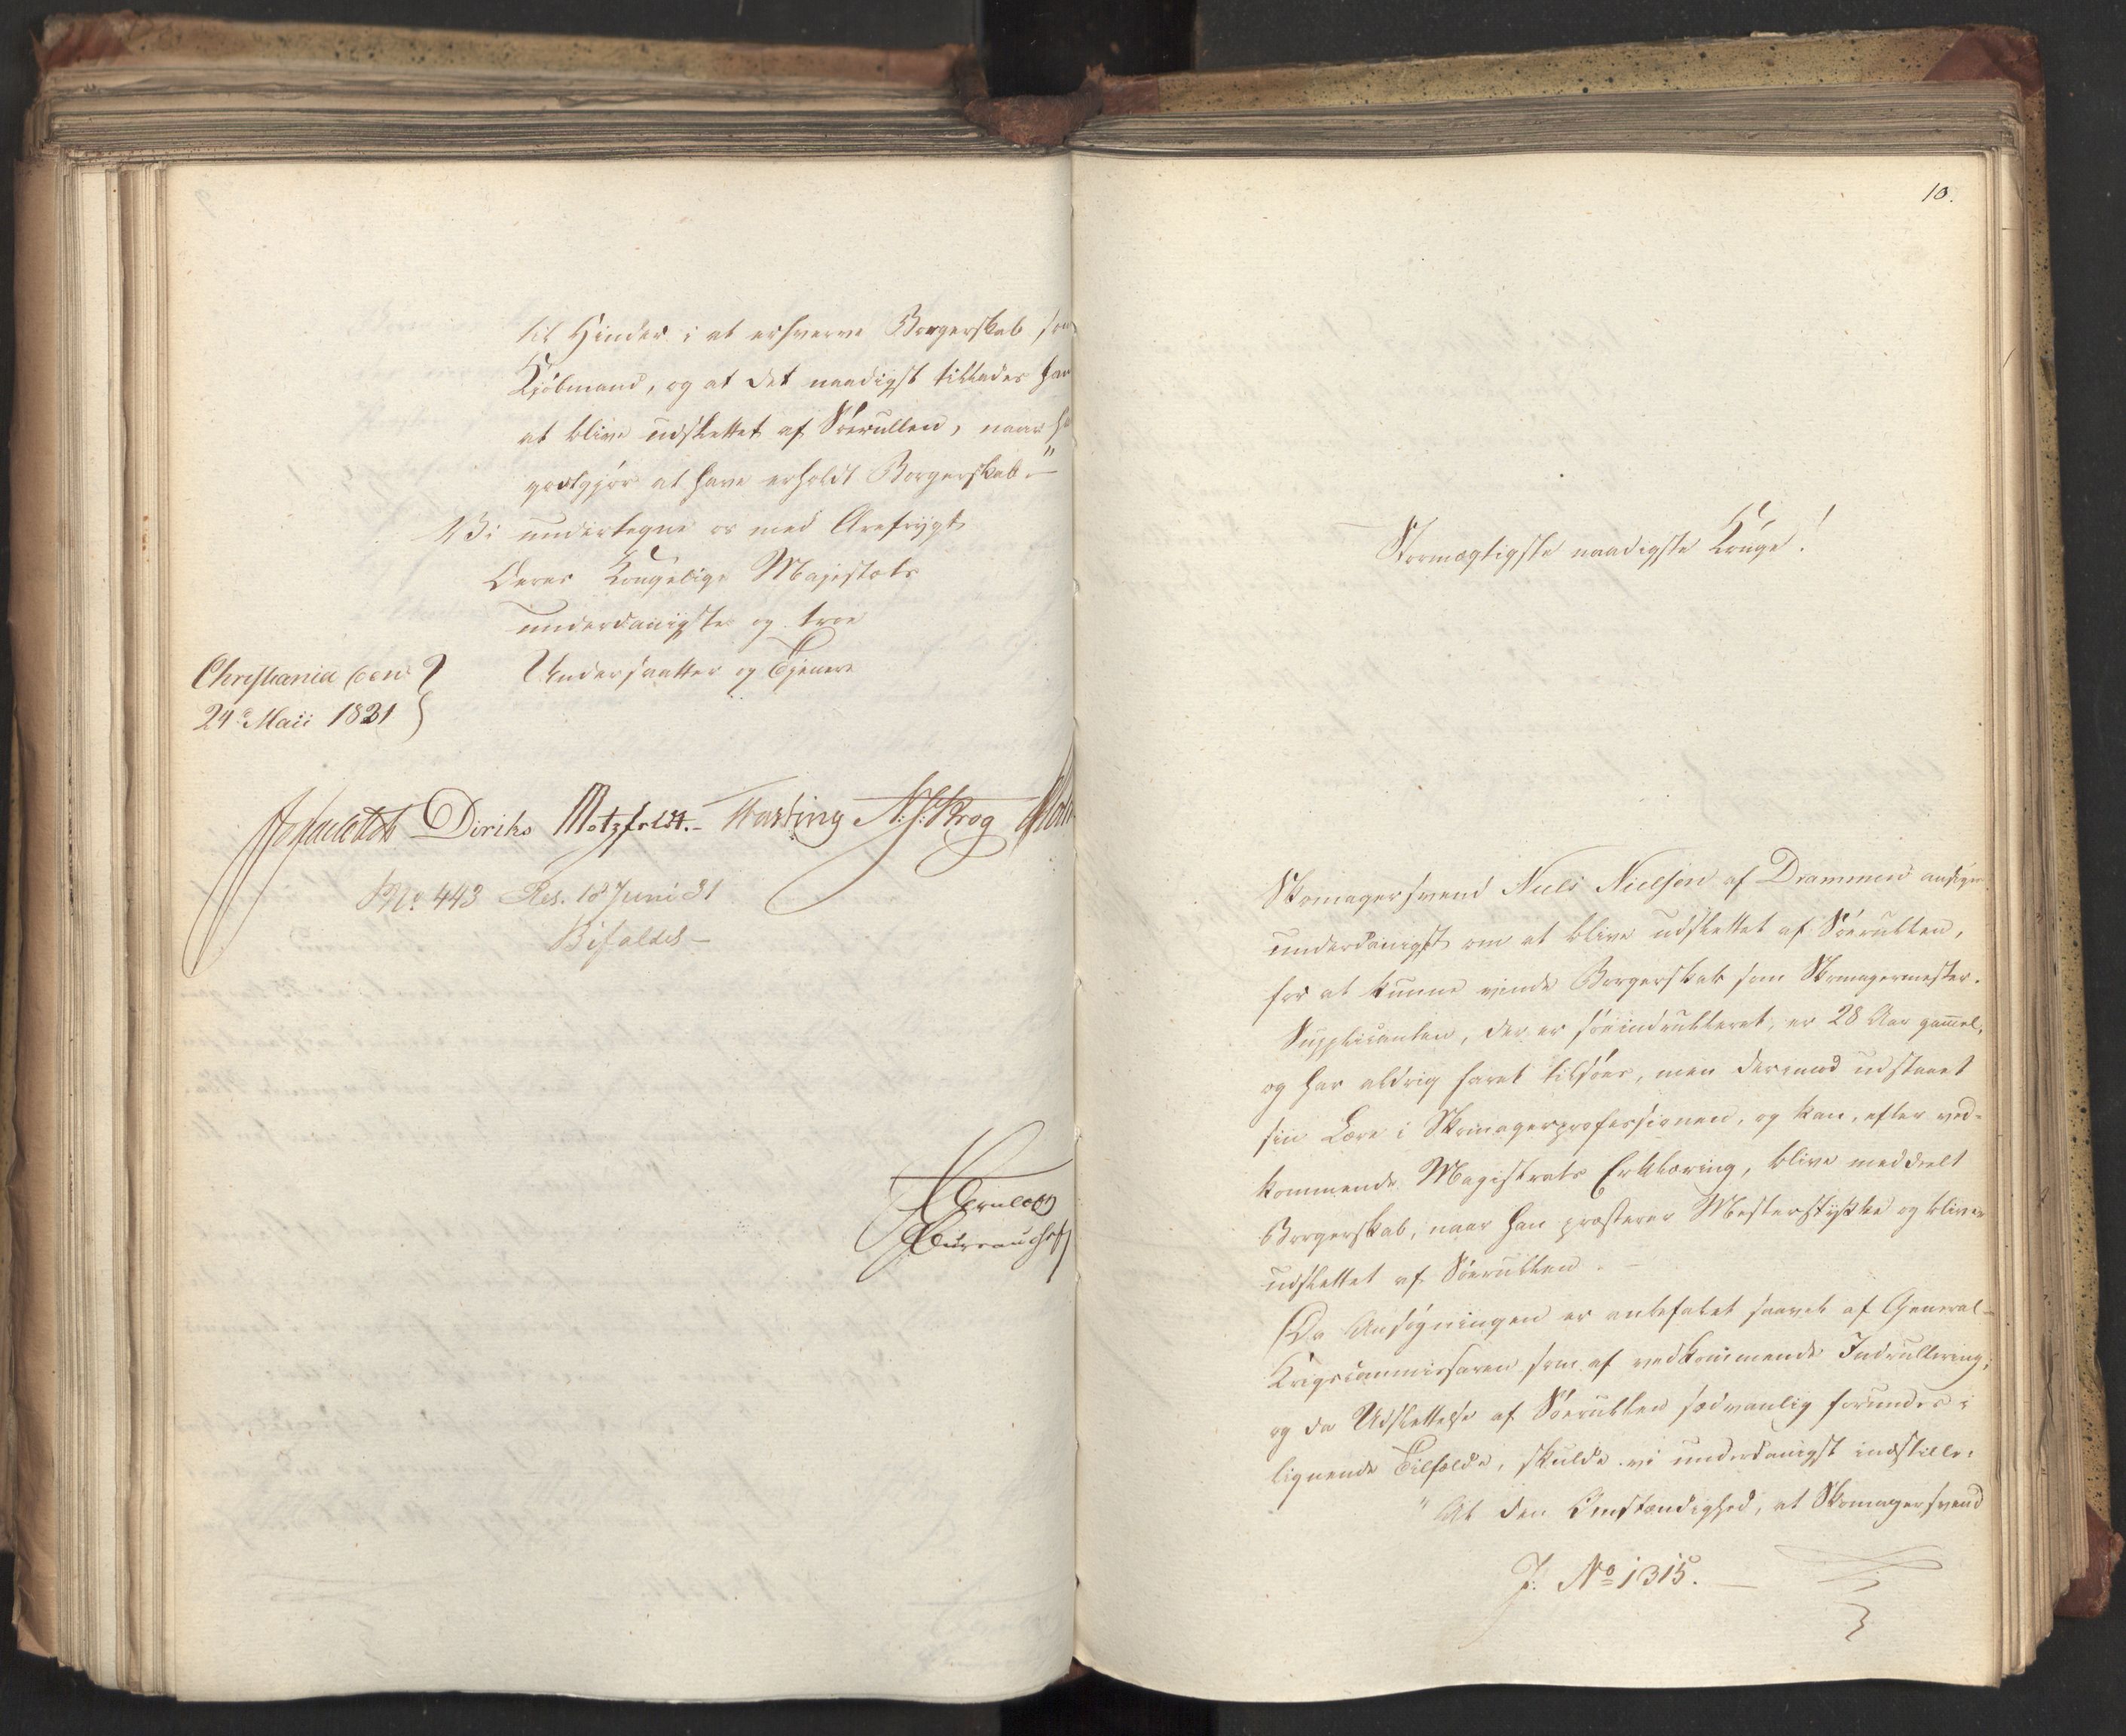 til Hinder i at erhverve Borgerskab som
Kjöbmand, og at det naadigst tillades ham
at blive udslettet af Söerullen, naar ha
godtgjör at have erholdt Borgerskab."
Vi undertegne os med Ærefrygt
Deres Kongelige Majestæts
underdanigste og troe
Undersaatter og Tjenere
Christiania den
24de Maii 1831
Diriks Motzfeldt. Fasting N. J. Krog
No 443 Res. 18 Juni 31
Bifaldes
Bureauchef
10.
Stormægtigste naadigste Konge!
Skomagersvend Niels Nielsen af Drammen ansöger
underdanigst om at blive udslettet af Söerullen,
for at kunne vinde Borgerskab som Skomagermester.
Supplicanten, der er söeindrulleret, er 28 Aar gammel,
og har aldrig faret tilsöes, men derimod udstaaet
sin Lære i Skomagerprofessionen, og kan, efter ved-
kommende Magistrats Erklæring, blive meddeelt
Borgerskab, naar han præsterer Mesterstykke og bliver
udslettet af Söerullen. –
Da Ansögningen er anbefalet saavel af General-
Krigscommissairen som af vedkommende Indrullering,
og da Udslettelse af Söerullen sædvanlig forundes i
lignende Tilfælde, skulde vi underdanigst indstille:
"At den Omstændighed, at Skomagersvend
J. No 1315. –